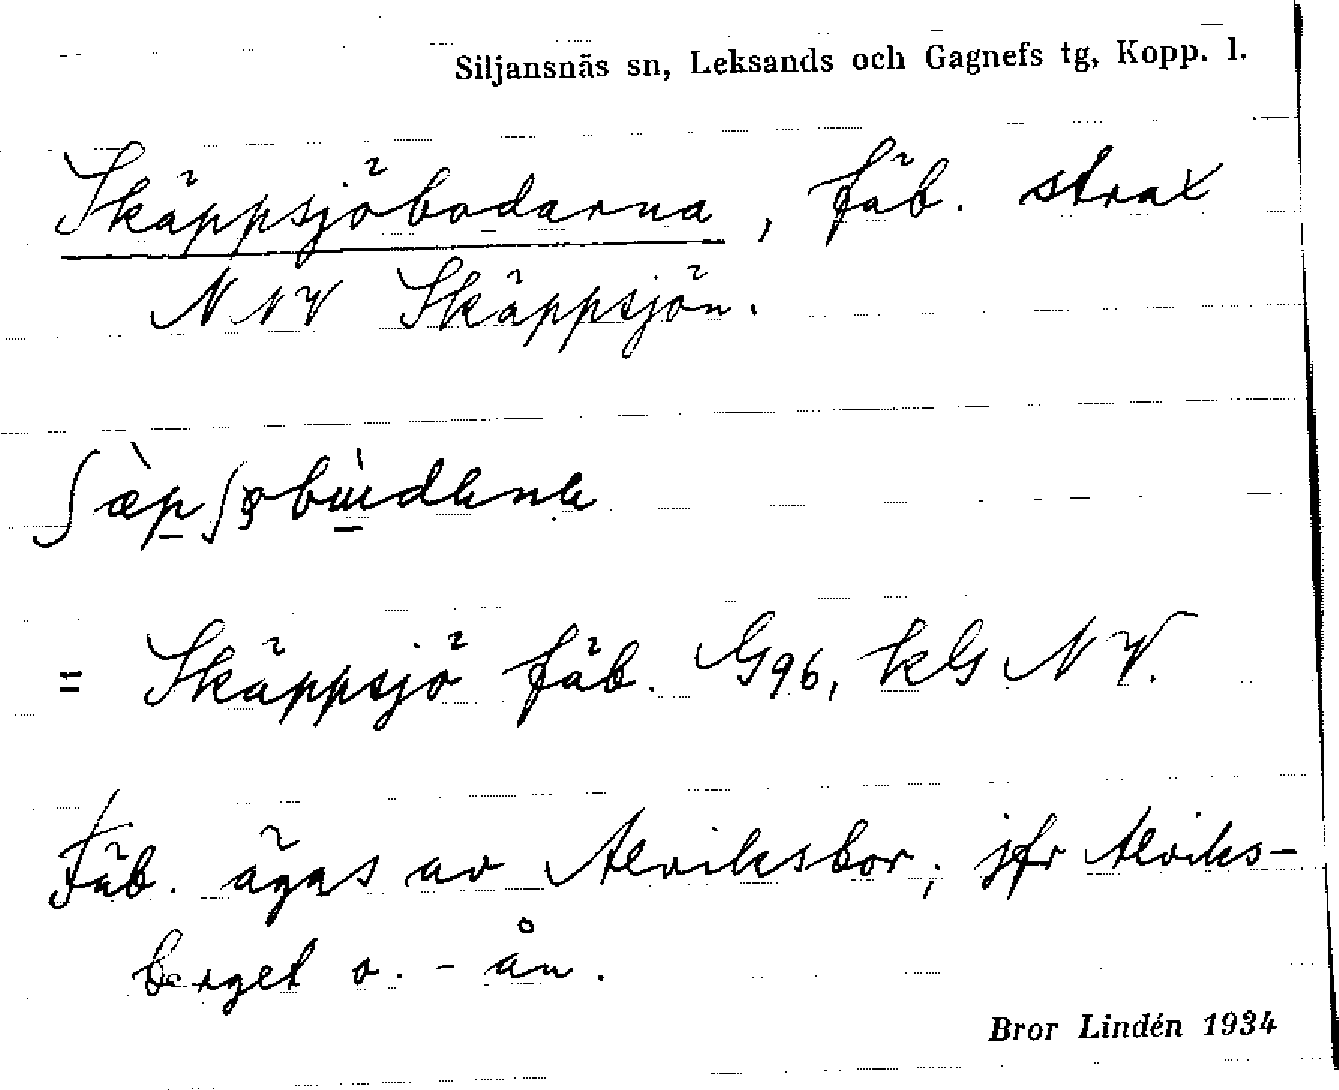 Siljansnäs sn, Leksands och Gagnefs tg, Kopp. l.
Skäppsjöbodarna, fäb. strax
NNV Skäppsjön.
= Skäppsjö fäb. G96, kG NV.
Fäb. ägas av Alviksbor; jfr Alviks-
berget o. -ån.
Bror Lindén 1934